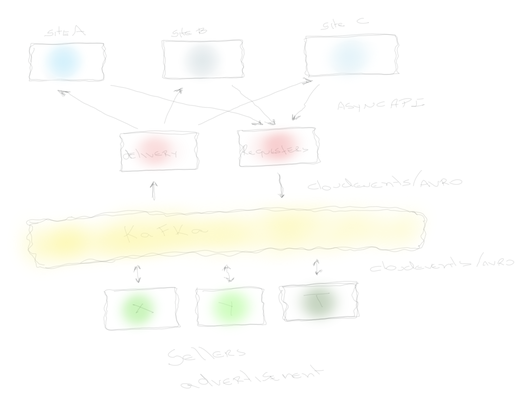 site A
site B
site C
ASYNC API
delivery
Requesters
cloudevents/AVRO
KAFKA
cloudevents/AVRO
X
Y
Sellers
advertisement